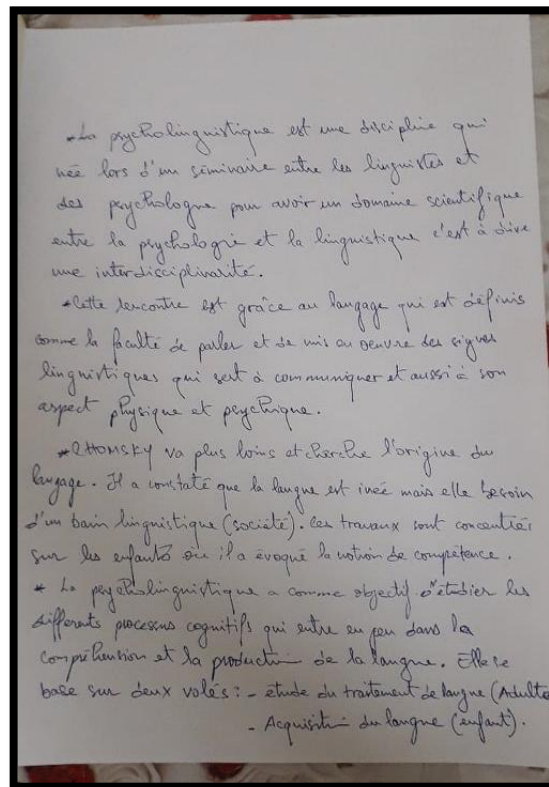 *La psycholinguistique est une discipline qui
née lors d'un séminaire entre les linguistes et
des psychologue pour avoir un domaine scientifique
entre la psychologie et la linguistique c'est à dire
une interdisciplinarité.
*Cette rencontre est grâce au langage qui est définis
comme la faculté de parler et de mis en oeuvre des signes
linguistiques qui sert à communiquer et aussi à son
aspect physique et psychique.
*CHOMSKY va plus loins et cherche l'origine du
langage. Il a constaté que la langue est inée mais elle besoin
d'un bain linguistique (société). Ces travaux sont concentrés
sur les enfants où il a évoqué la notion de compétence.
* La psycholinguistique a comme objectif d'étudier les
différents processus cognitifs qui entre en jeu dans la
compréhension et la production de la langue. Elle se
base sur deux volés : - étude du traitement de langue (Adulte
- Acquisition du langue (enfant).